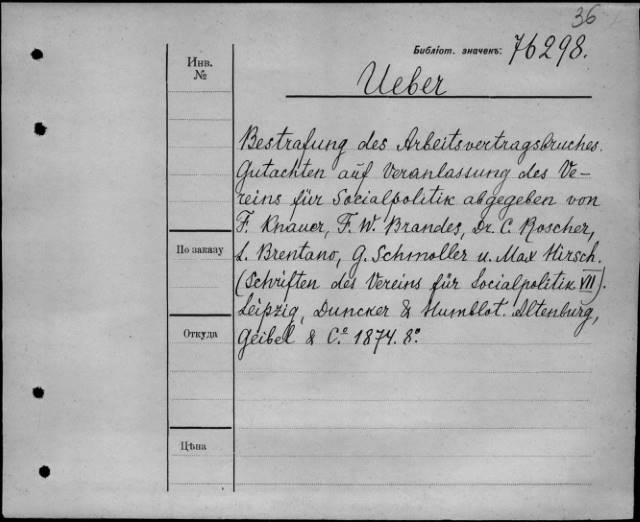 36
Библіот. значекъ: 76298.
Инв.
№
Ueber
Bestrafung des Arbeitsvertragsbruches.
Gutachten auf Veranlassung des Ve-
reins für Socialpolitik abgegeben von
F. Knauer, F. W. Brandes, Dr. C. Roscher,
По заказу
L. Brentano, G. Schmoller u. Max Hirsch.
(Schriften des Vereins für Socialpolitik VII).
Leipzig, Duncker & Humblot. Altenburg,
Откуда
Geibel & C.º 1874. 8º.
Цѣна